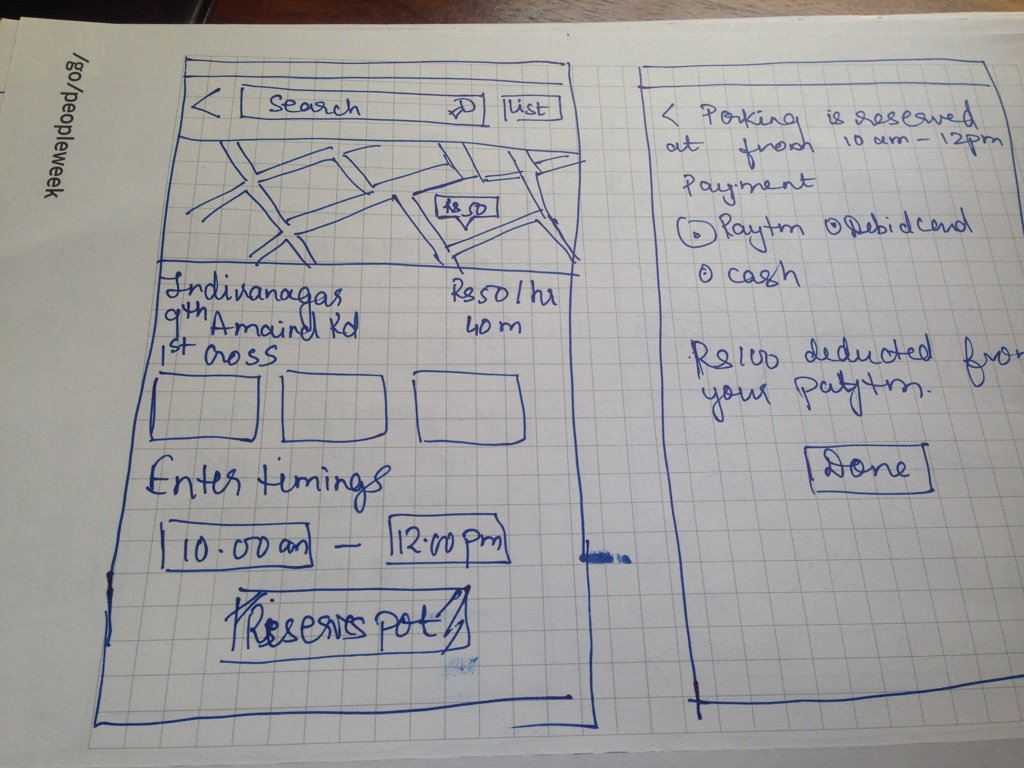 /go/peopleweek
< Search List
Rs. 50
Indiranagar Rs 50/hr
9th Amaind Rd 40 m
1st cross
Enter timings
10.00 am – 12.00 pm
Reserve spot
< Parking is reserved
at from 10 am – 12pm
Payment
Paytm Debid card
cash
Rs 100 deducted from
your paytm.
Done